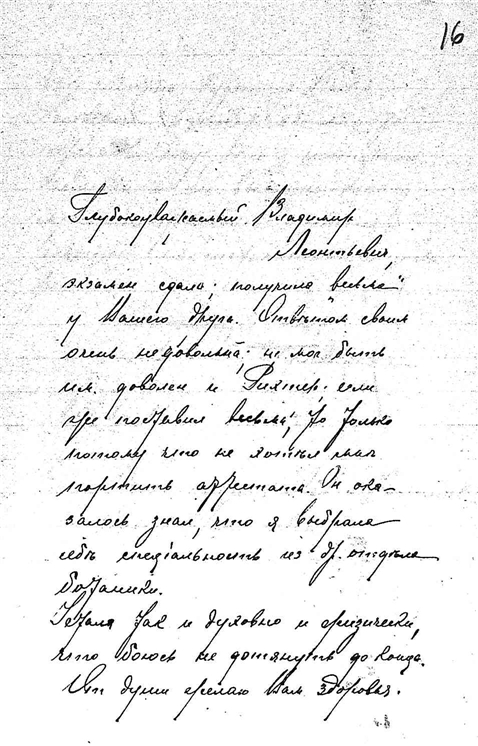 16
Глубокоуважаемый Владимир
Леонтьевич,
экзамен сдала; получила "весьма"
у Вашего друга. Отвѣтом своим
очень недовольна; не мог быть
им доволен и Рихтер; если
же поставил весьма, то только
потому что не хотѣл мне
портить аттестата. Он ока-
залось знал, что я выбрала
себѣ специальность из др. отдѣла
ботаники.
Устала так и духовно и физически,
что боюсь не дотянуть до конца.
От души желаю Вам здоровья.